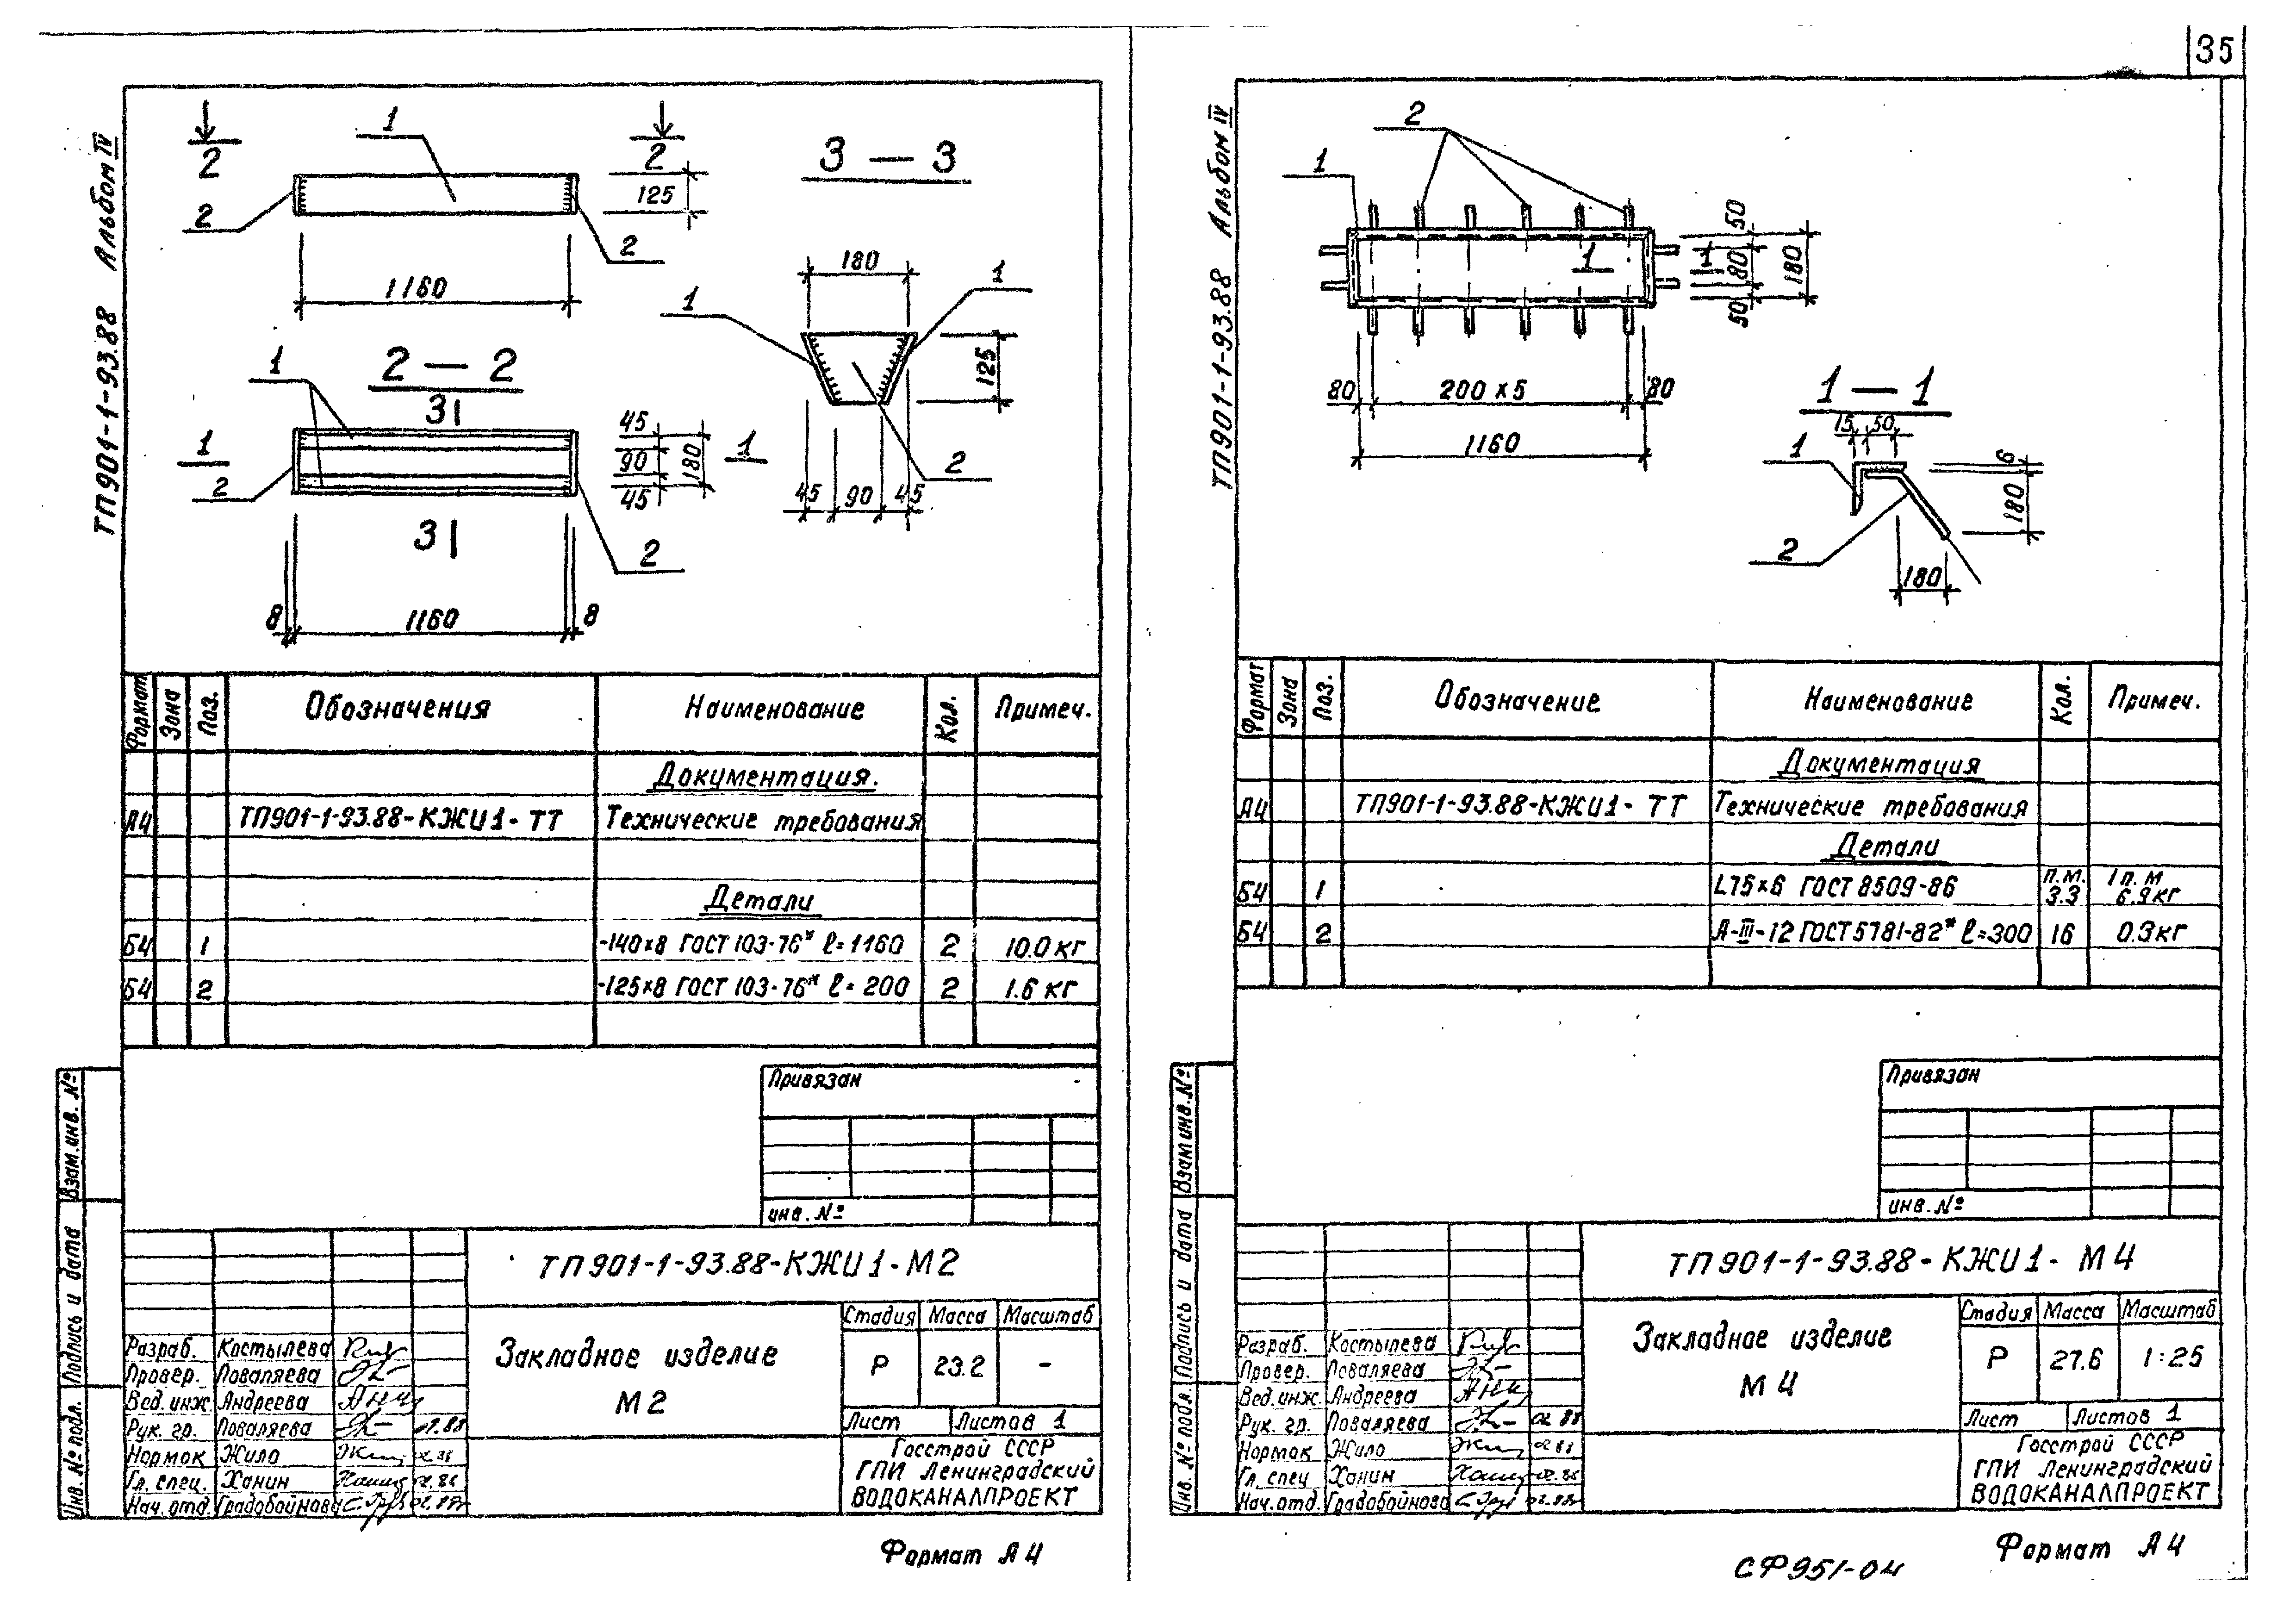 35
ТП901-1-93.88 Альбом IV
2
2
1
2
2
125
1160
3 — 3
180
1
1
125
2
45
90
45
2 — 2
1
3
1
2
45
90
45
180
1
3
2
8
1160
8
Формат
Зона
Поз.
Обозначения
Наименование
Кол.
Примеч.
Документация.
А4 ТП901-1-93.88-КЖИ1-ТТ Технические требования
Детали
Б4 1 -140×8 ГОСТ 103-76* ℓ=1160 2 10.0 кг
Б4 2 -125×8 ГОСТ 103-76* ℓ=200 2 1.6 кг
Привязан
инв. №
Взам.инв. №
Подпись и дата
Инв. № подл.
ТП901-1-93.88-КЖИ1-М2
Закладное изделие
М2
Стадия Масса Масштаб
Р 23.2 -
Лист Листов 1
Госстрой СССР
ГПИ Ленинградский
ВОДОКАНАЛПРОЕКТ
Разраб. Костылева
Провер. Поваляева
Вед. инж. Андреева
Рук. гр. Поваляева
Нормок Жило
Гл. спец. Ханин
Нач. отд. Градобойнова
Формат А4
ТП901-1-93.88 Альбом IV
2
1
1
1
50
80
50
180
80
200×5
80
1160
1 — 1
15
50
1
6
180
2
180
Формат
Зона
Поз.
Обозначение
Наименование
Кол.
Примеч.
Документация
А4 ТП901-1-93.88-КЖИ1-ТТ Технические требования
Детали
Б4 1 L75×6 ГОСТ 8509-86 п.м. 3.3 1 п.м 6.9 кг
Б4 2 А-III-12 ГОСТ 5781-82* ℓ=300 16 0.3 кг
Привязан
инв. №
Взам инв. №
Подпись и дата
Инв. № подл.
ТП901-1-93.88-КЖИ1-М4
Закладное изделие
М4
Стадия Масса Масштаб
Р 27.6 1:25
Лист Листов 1
Госстрой СССР
ГПИ Ленинградский
ВОДОКАНАЛПРОЕКТ
Разраб. Костылева
Провер. Поваляева
Вед. инж. Андреева
Рук. гр. Поваляева
Нормок Жило
Гл. спец Ханин
Нач. отд. Градобойнова
Формат А4
СФ951-04